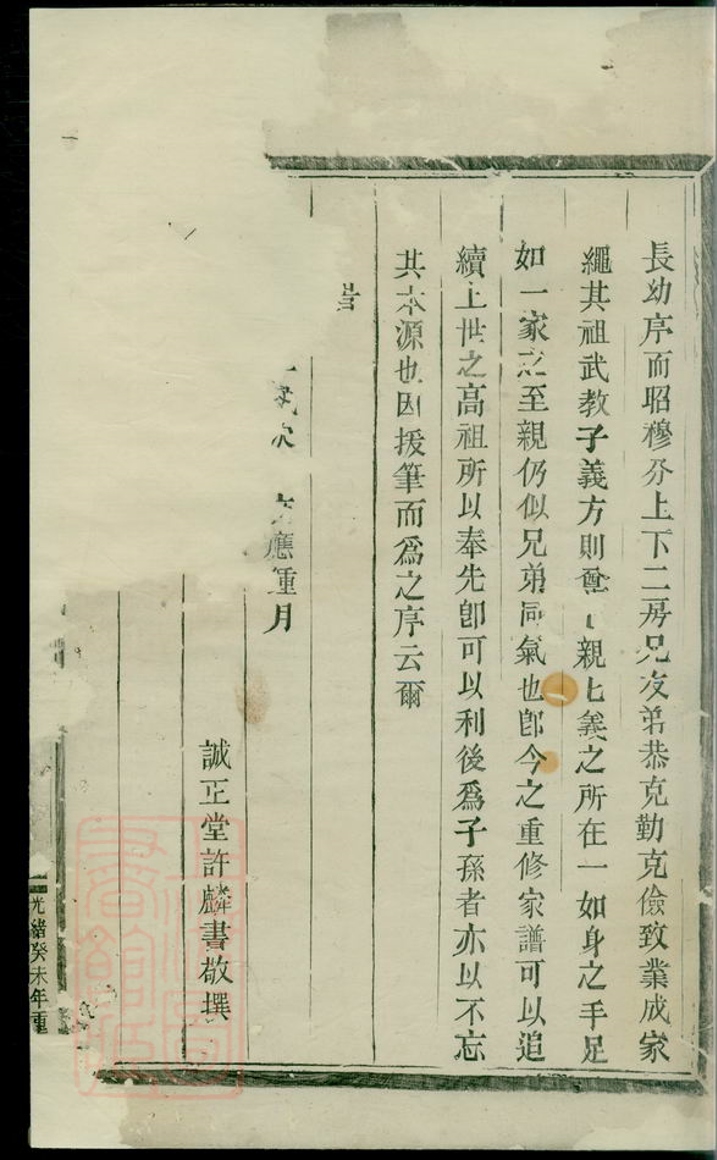 長幼序而昭穆分上下二房兄友弟恭克勤克儉致業成家
繩其祖武教子義方則親義之所在一如身之手足
如一家之至親仍似兄弟同氣也卽今之重修家譜可以追
續上世之高祖所以奉先卽可以利後爲子孫者亦以不忘
其本源也因援筆而爲之序云爾
旹
次應鐘月
誠正堂許麟書敬撰
光緒癸未年重